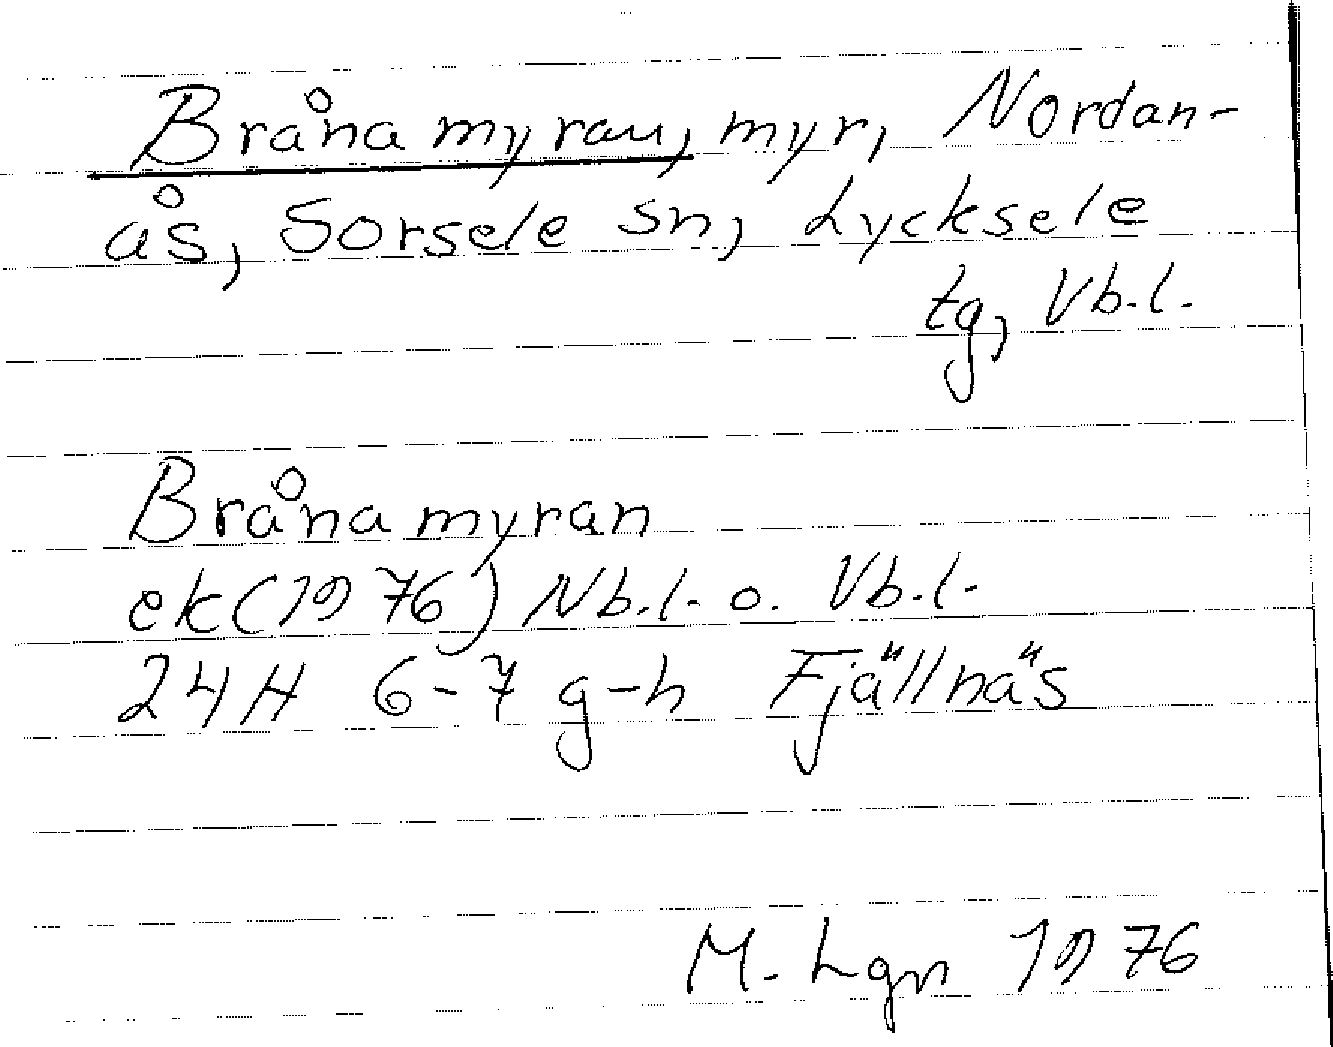 Brånamyran, myr, Nordan-
ås, Sorsele sn, Lycksele
tg, Vb.l.
Brånamyran
ek (1976) Nb.l. o. Vb.l.
24H 6-7 g-h Fjällnäs
M. Lgn 1976